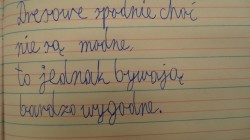 Dresowe spodnie choć
nie są modne,
to jednak bywają
bardzo wygodne.